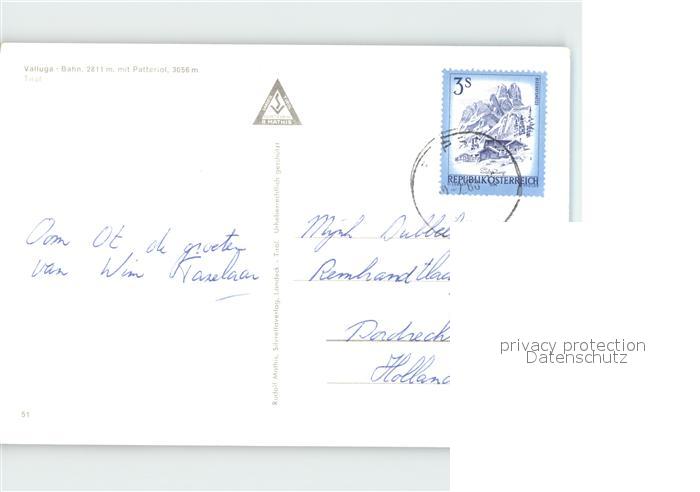 Valluga - Bahn, 2811 m, mit Patteriol, 3056 m
Tirol
3s
REPUBLIK ÖSTERREICH
R MATHIS
Rudolf Mathis, Silvrettaverlag, Landeck - Tirol. Urheberrechtlich geschützt
Oom Ot de groeten
van Wim
Mijnh Dubbel
Rembrandtlaa
Dordrech
Holland
51
privacy protection
Datenschutz